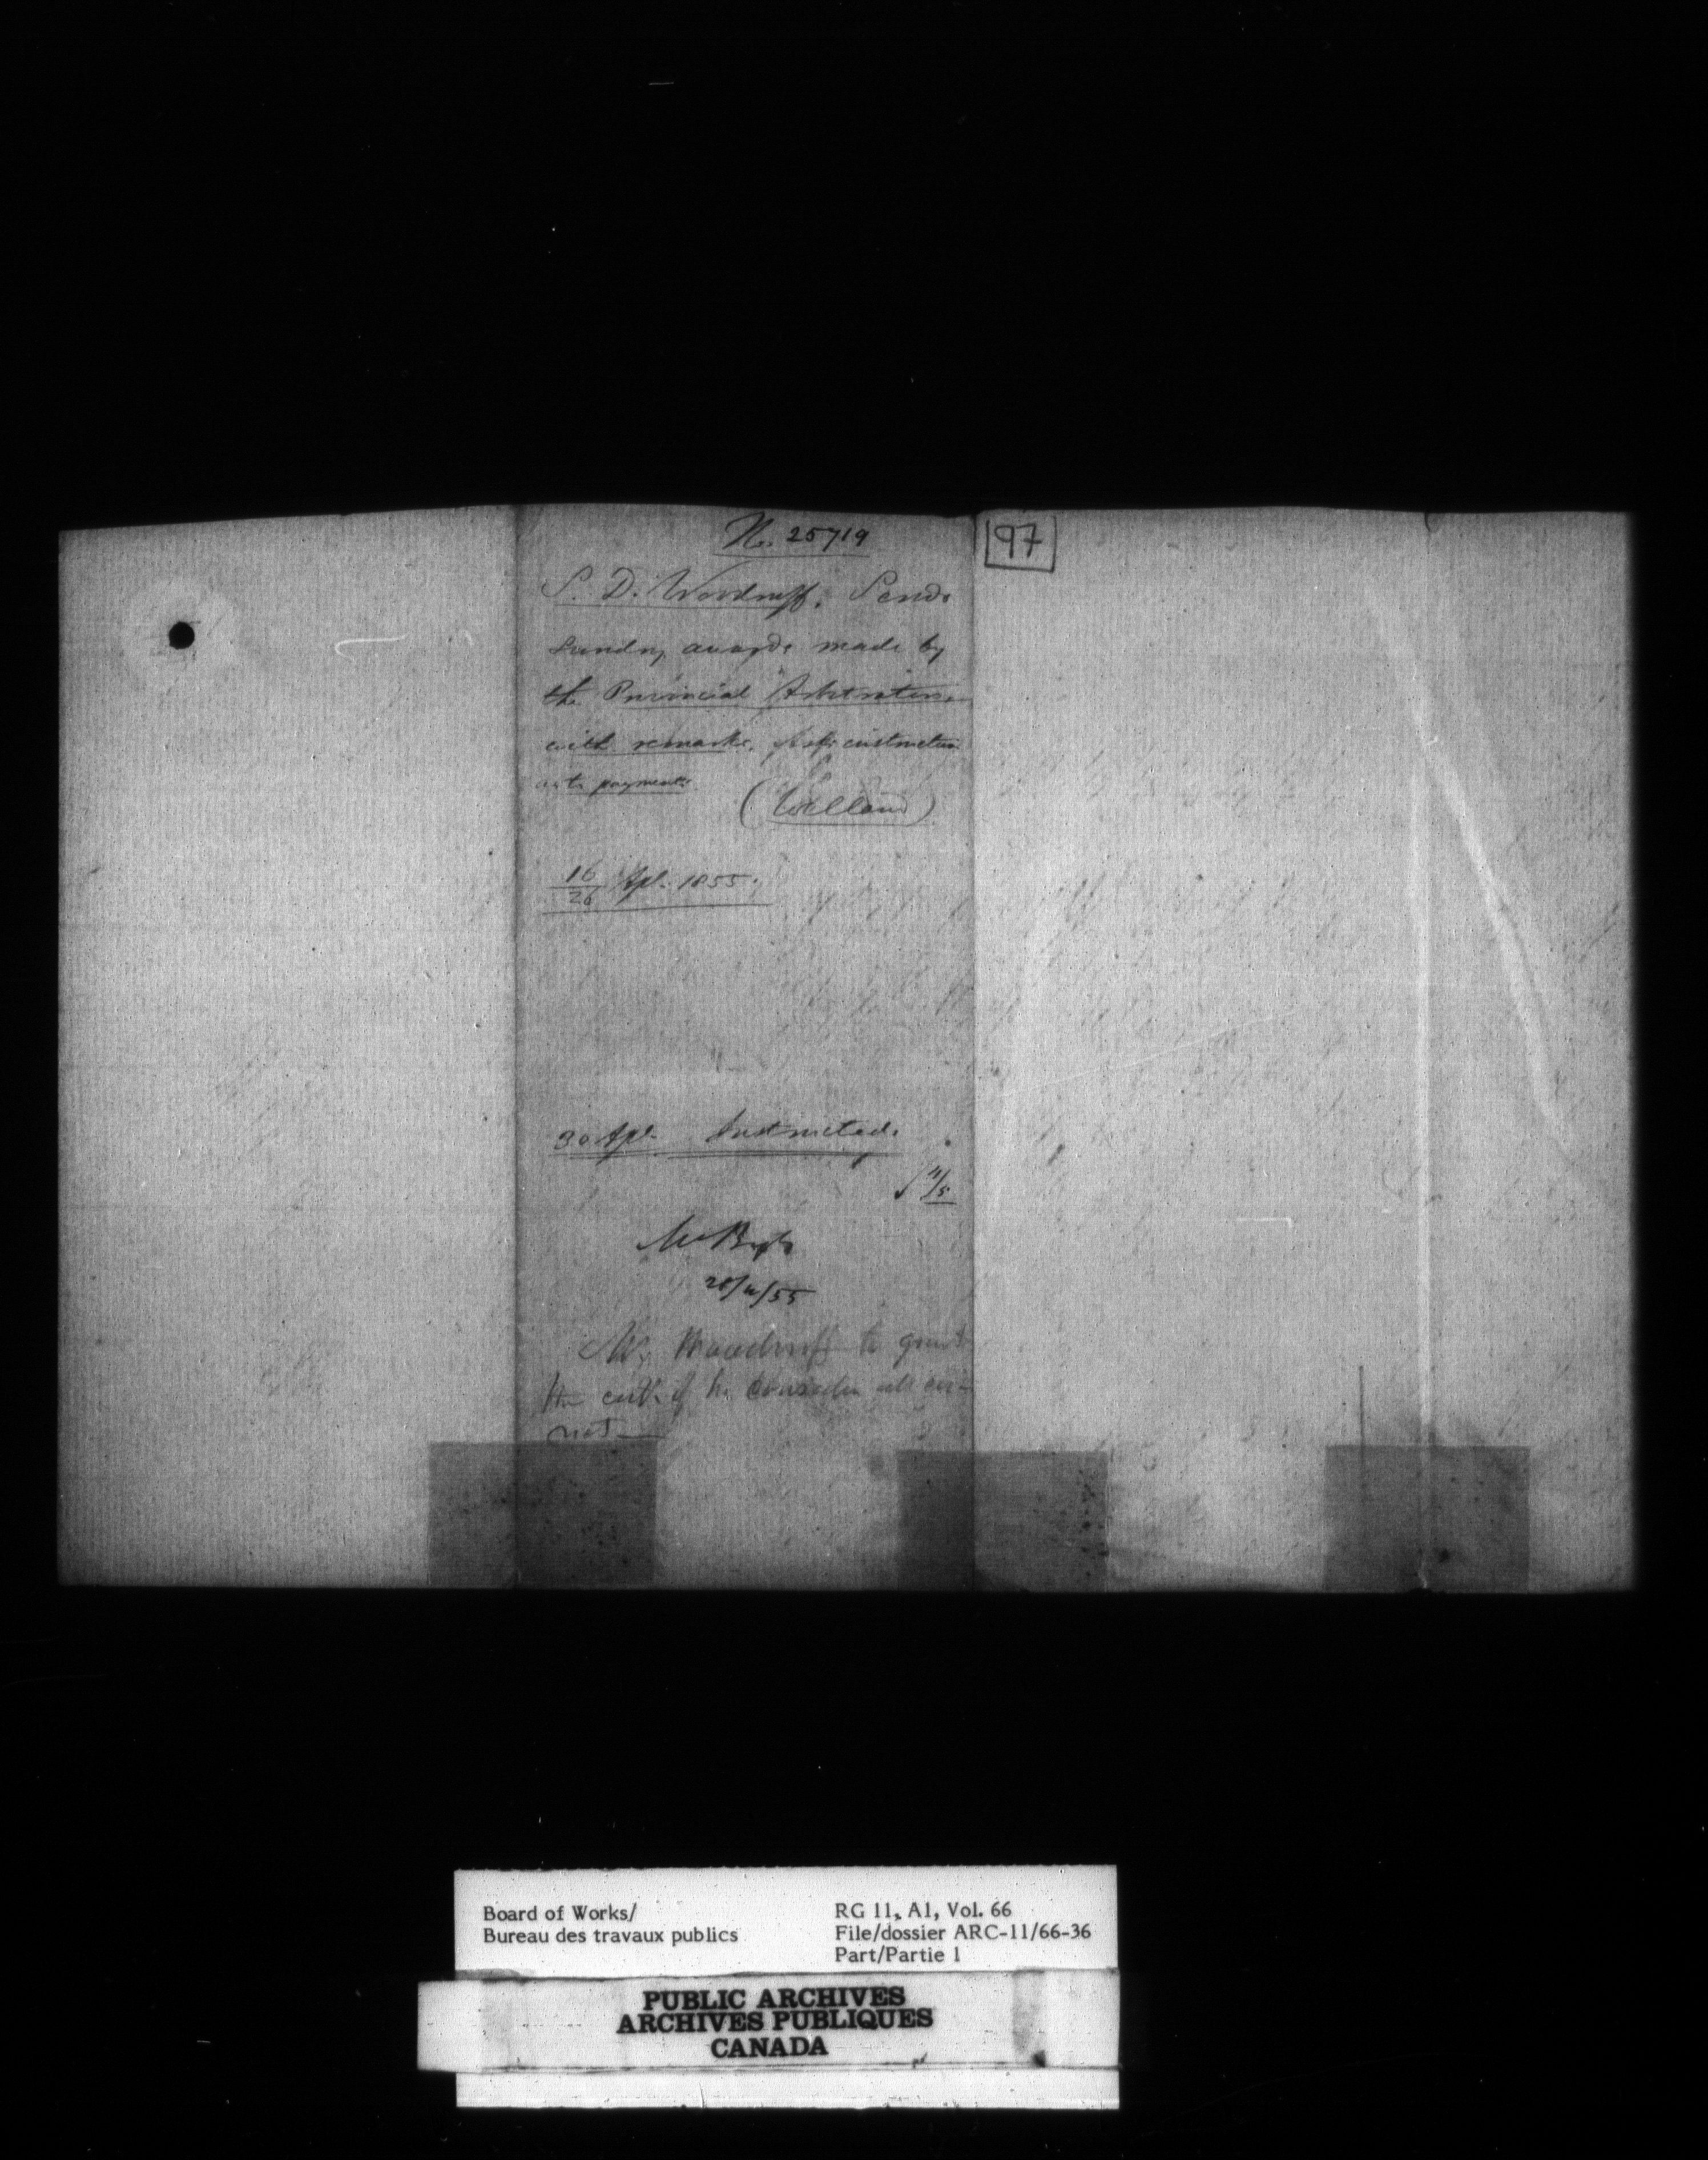 No. 25719
97
S. D. Woodruff. Sends
Sundry awards made by
the Provincial Arbitrators,
with remarks. Asks instruction
as to payments.
(Welland)
16/26 Apl. 1855.
30 Apl. Instructed.
4/5
28/4/55
Mr. Woodruff to grant
the cert. if he consider all cor-
rect
Board of Works/
Bureau des travaux publics
RG 11, A1, Vol. 66
File/dossier ARC-11/66-36
Part/Partie 1
PUBLIC ARCHIVES
ARCHIVES PUBLIQUES
CANADA